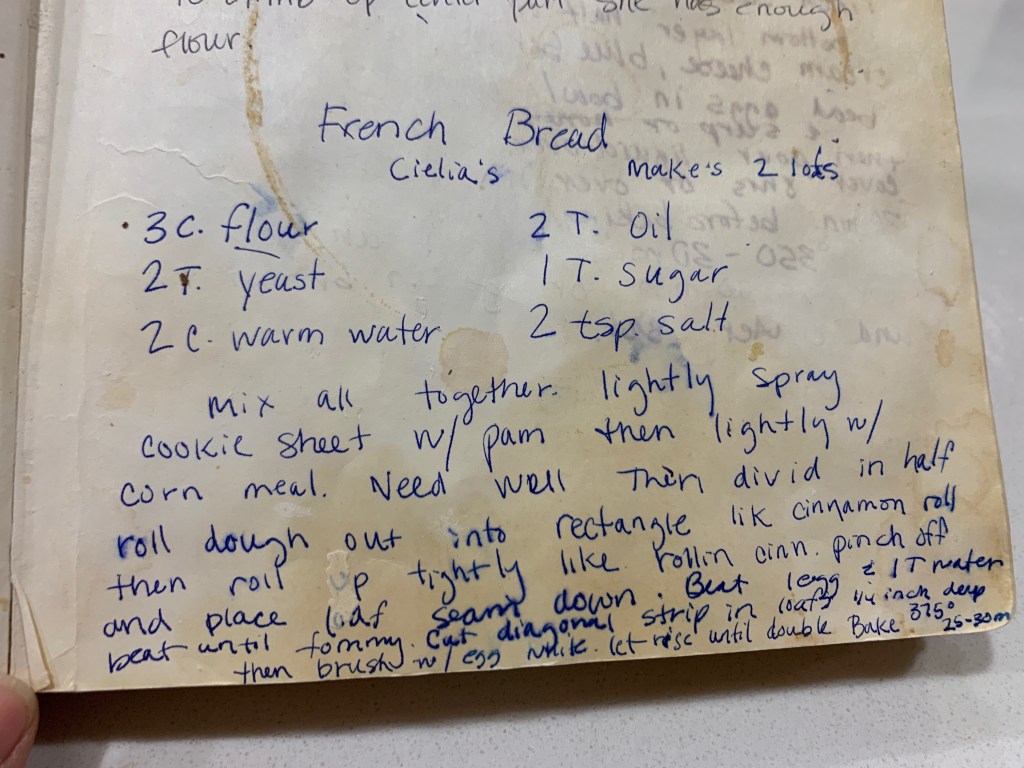 up child part she has enough
flour
French Bread
Cielia's make's 2 lofs
3 C. flour 2 T. Oil
2 T. yeast 1 T. sugar
2 C. warm water 2 tsp. salt
mix all together. lightly spray
cookie sheet w/ pam then lightly w/
corn meal. Need well Then divid in half
roll dough out into rectangle lik cinnamon roll
then roll up tightly like rollin cinn. pinch off
and place loaf seam down. Beat 1 egg & 1 T water
beat until fommy. Cut diagonal strip in loafs 1/4 inch deep
then brush w/ egg white. let rise until double Bake 375° 25-30m